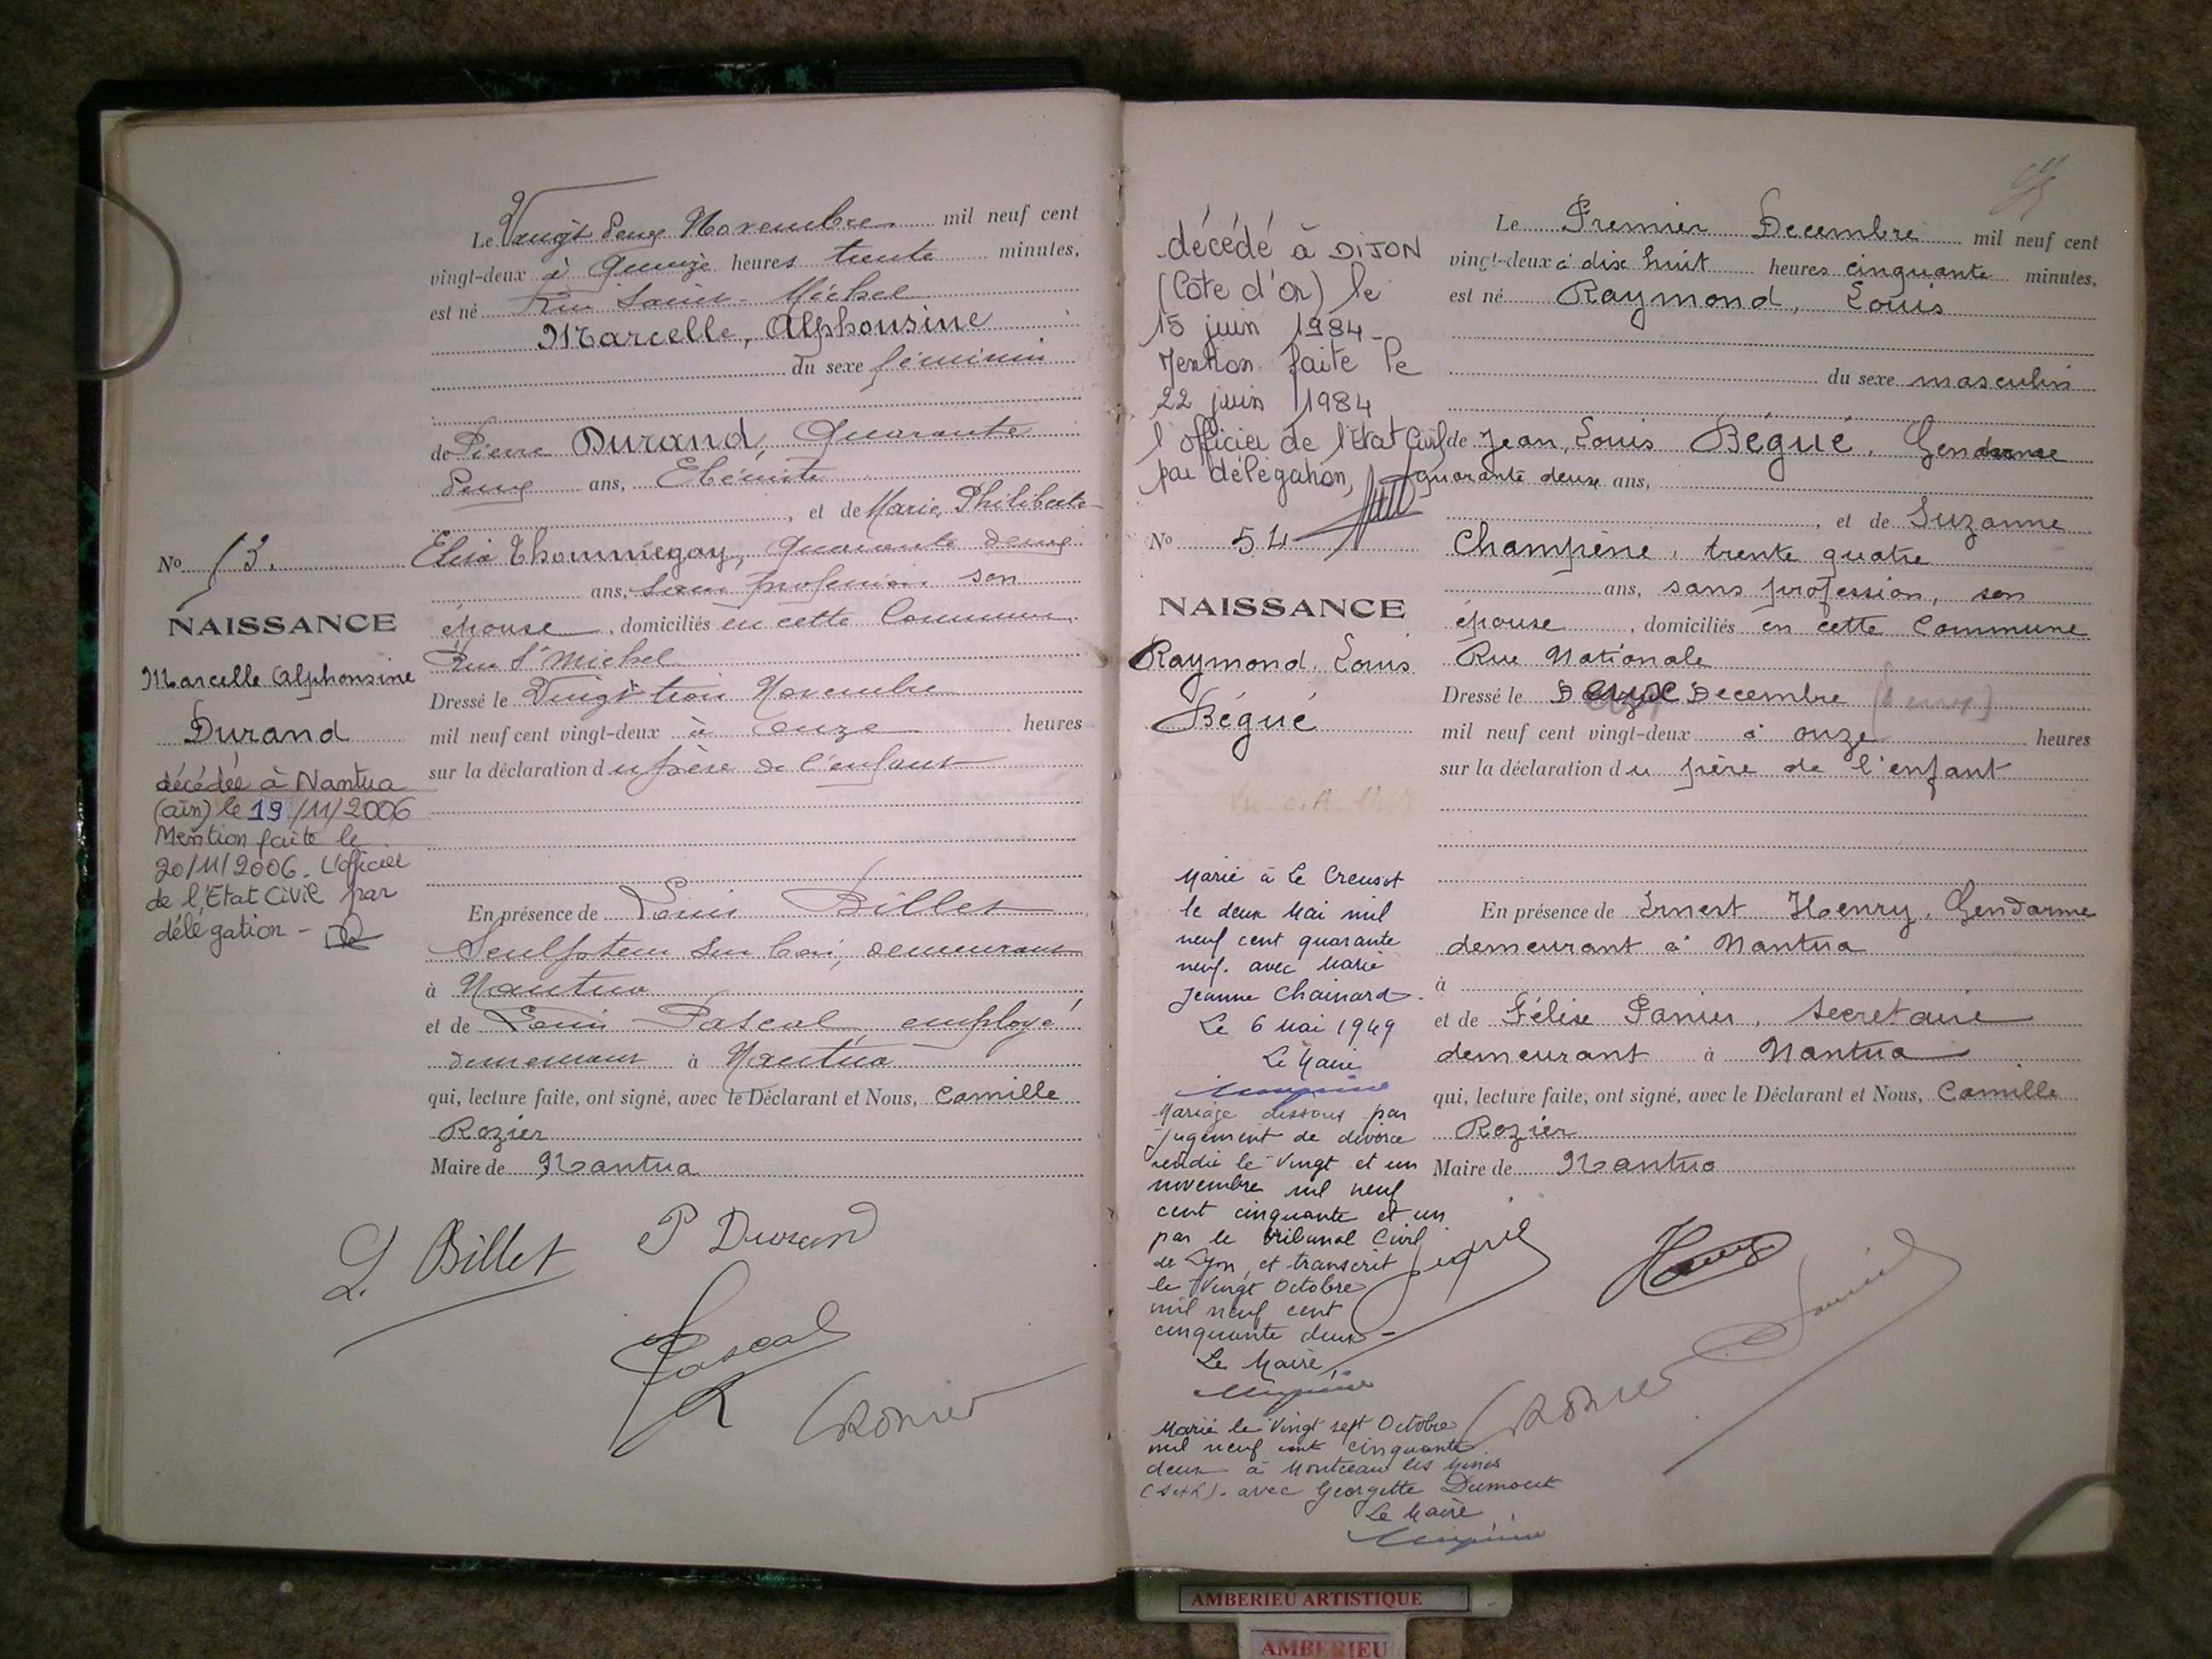 Le Vingt deux Novembre mil neuf cent
vingt-deux à Quinze heures trente minutes,
est né Rue Saint-Michel
Marcelle, Alphonsine
du sexe féminin
de Pierre Durand, Quarante
deux ans, Ebéniste
, et de Marie, Philiberte
Elisa Thommegay, quarante deux
ans, sans profession son
épouse, domiciliés en cette Commune,
Rue St Michel
Dressé le Vingt trois Novembre
mil neuf cent vingt-deux à onze heures
sur la déclaration du père de l'enfant
En présence de Louis Billet
Sculpteur sur bois, demeurant
à Nantua
et de Louis Pascal, employé
demeurant à Nantua
qui, lecture faite, ont signé, avec le Déclarant et Nous, Camille
Rozier
Maire de Nantua
L. Billet
P Durand
Pascal
Rozier
No 53.
NAISSANCE
Marcelle Alphonsine
Durand
décédée à Nantua
(ain) le 19/11/2006
Mention faite le
20/11/2006. L'officier
de l'Etat Civil par
délégation -
décédé à DIJON
(Côte d'or) le
15 juin 1984
Mention faite le
22 juin 1984
l'officier de l'Etat Civil
par délégation,
No 54
NAISSANCE
Raymond, Louis
Bégué
Marié à Le Creusot
le deux Mai mil
neuf cent quarante
neuf. avec Marie
Jeanne Chainard.
Le 6 Mai 1949
Le Maire
Mariage dissous par
jugement de divorce
rendu le vingt et un
novembre mil neuf
cent cinquante et un
par le tribunal Civil
de Lyon, et transcrit
le Vingt Octobre
mil neuf cent
cinquante deux -
Le Maire,
Marié le Vingt sept Octobre
mil neuf cent cinquante
deux à Montceau les Mines
(S et L). avec Georgette Dumont
Le Maire
Le Premier Decembre mil neuf cent
vingt-deux à dix huit heures cinquante minutes,
est né Raymond, Louis
du sexe masculin
de Jean, Louis Bégué, Gendarme
quarante deux ans,
, et de Suzanne
Champène, trente quatre
ans, sans profession, son
épouse, domiciliés en cette Commune
Rue Nationale
Dressé le Deux Decembre
mil neuf cent vingt-deux à onze heures
sur la déclaration du père de l'enfant
En présence de Ernest Henry, Gendarme
demeurant à Nantua
à
et de Félise Panier, Secretaire
demeurant à Nantua
qui, lecture faite, ont signé, avec le Déclarant et Nous, Camille
Rozier
Maire de Nantua
Henry
Rozier
AMBERIEU ARTISTIQUE
AMBERIEU